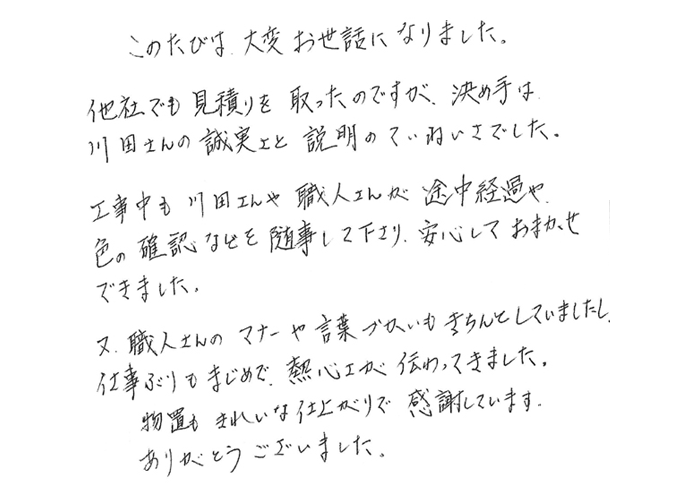 このたびは、大変お世話になりました。
他社でも見積りを取ったのですが、決め手は
川田さんの誠実さと説明のていねいさでした。
工事中も川田さんや職人さんが途中経過や、
色の確認などを随事して下さり、安心しておまかせ
できました。
又、職人さんのマナーや言葉づかいもきちんとしていましたし、
仕事ぶりもまじめで、熱心さが伝わってきました。
物置もきれいな仕上がりで感謝しています。
ありがとうございました。